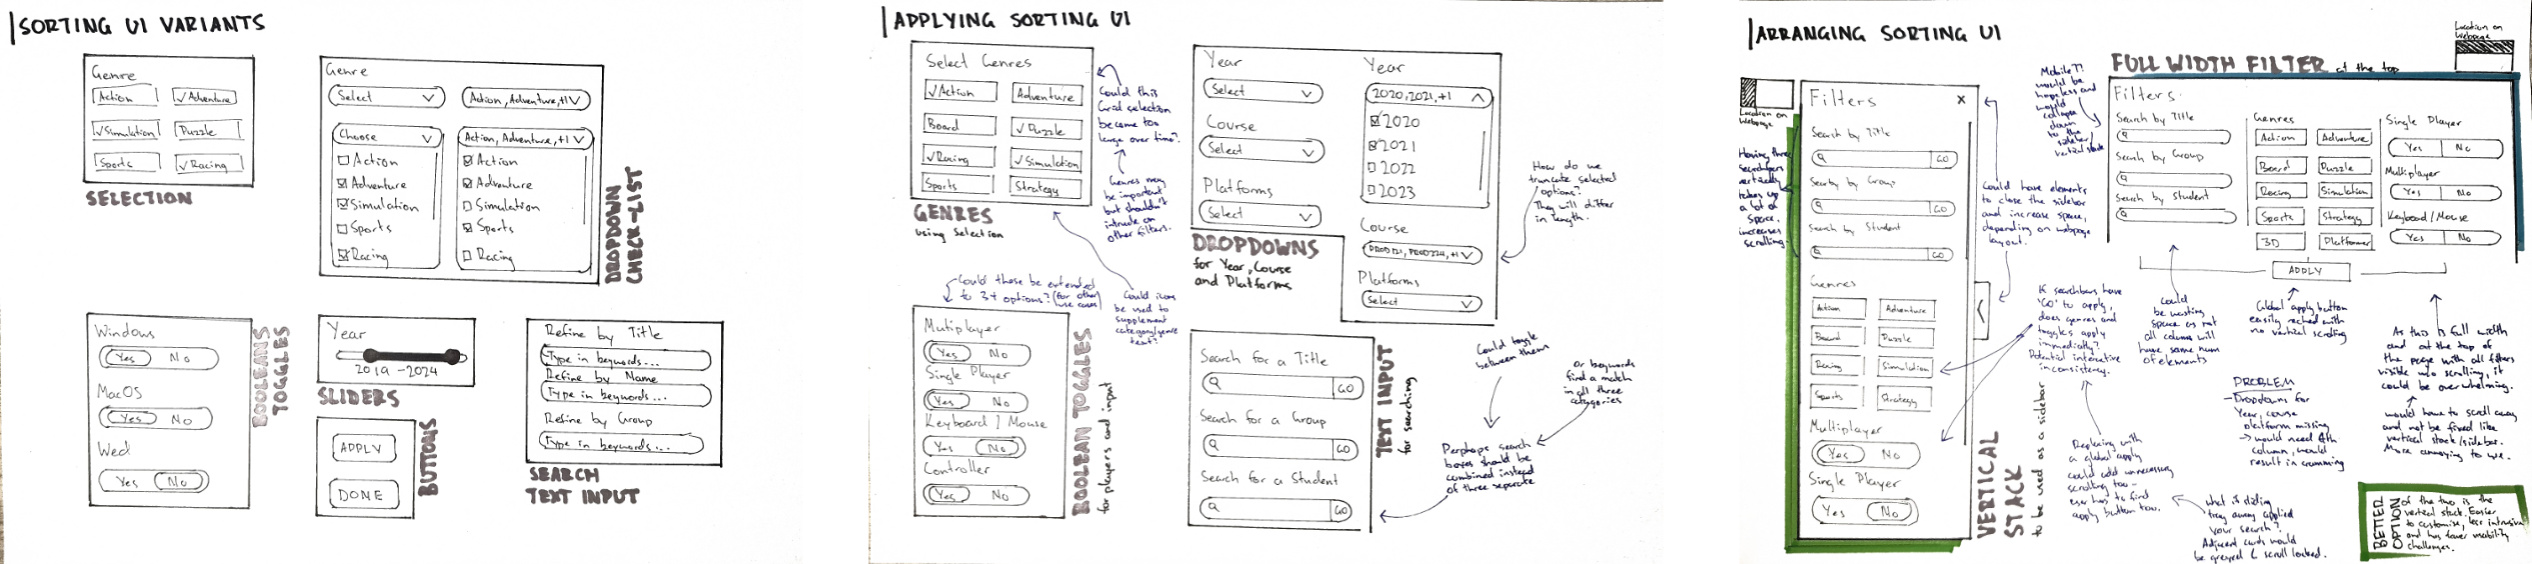 SORTING UI VARIANTS
Genre
Action
✓Adventure
✓Simulation
Puzzle
Sports
✓Racing
SELECTION
Genre
Select
Action, Adventure, +1
Choose
Action, Adventure, +1
Action
Adventure
Simulation
Sports
Racing
Action
Adventure
Simulation
Sports
Racing
DROPDOWN
CHECK-LIST
Windows
Yes
No
MacOS
Yes
No
Yes
No
BOOLEANS
TOGGLES
Year
2019 - 2024
SLIDERS
APPLY
DONE
BUTTONS
Refine by Title
Type in keywords...
Refine by Name
Type in keywords...
Refine by Group
Type in keywords...
SEARCH
TEXT INPUT
APPLYING SORTING UI
Select Genres
✓Action
Adventure
Board
✓Puzzle
✓Racing
✓Simulation
Sports
Strategy
GENRES
using Selection
Could this
Grid selection
become too
large over time?
Genres may
be important
but shouldn't
intrude on
other filters.
Year
Select
Course
Select
Platforms
Select
DROPDOWNS
for Year, Course
and Platforms
Year
2020, 2021, +1
2020
2021
2022
2023
Course
Platforms
Select
How do we
truncate selected
options?
They will differ
in length.
Could these be extended
to 3+ options? (for other
use cases)
Could icons
be used to
supplement
category/genre
text?
Mutiplayer
Yes
No
Single Player
Yes
No
Keyboard / Mouse
Yes
No
Controller
Yes
No
BOOLEAN TOGGLES
for players and input
Search for a Title
GO
Search for a Group
GO
Search for a Student
GO
TEXT INPUT
for searching
Could toggle
between them
Or keywords
find a match
in all three
categories
Perhaps search
boxes should be
combined instead
of three separate
ARRANGING SORTING UI
Location on
Webpage
Having three
searchbars
vertically
takes up
a lot of
space.
increases
scrolling.
Filters
X
Search by Title
GO
Search by Group
GO
Search by Student
GO
Genres
Action
Adventure
Board
Puzzle
Racing
Simulation
Sports
Strategy
Multiplayer
Yes
No
Single Player
Yes
No
VERTICAL
STACK
to be used as a sidebar
Could have elements
to close the sidebar
and increase space,
depending on webpage
layout.
If searchbars have
'GO' to apply,
does genres and
toggles apply
immediately?
Potential interactive
inconsistency.
Replacing with
a global apply
could add unnecessary
scrolling too -
user has to find
apply button too.
What if sliding
tray away applied
your search?
Adjacent cards would
be greyed & scroll locked.
Location on
Webpage
FULL WIDTH FILTER at the top
would be
hopeless and
would
collapse
down
to the
sidebar/
vertical stack
Filters
Search by Title
Search by Group
Search by Student
Genres
Action
Adventure
Board
Puzzle
Racing
Simulation
Sports
Strategy
3D
Platformer
Single Player
Yes
No
Multiplayer
Yes
No
Keyboard/Mouse
Yes
No
APPLY
Could
be wasting
space as not
all column will
have same num
of elements
Global apply button
easily reached with
no vertical scrolling
As this is full width
and at the top of
the page with all filters
visible w/o scrolling, it
could be overwhelming.
would have to scroll away
and not be fixed like
vertical stack/sidebar.
More annoying to use.
PROBLEM
- Dropdowns for
Year, course
platform missing
→ would need 4th
column, would
result in cramming
BETTER
OPTION
of the two is the
vertical stack. Easier
to customise, less intrusive
and has fewer usability
challenges.